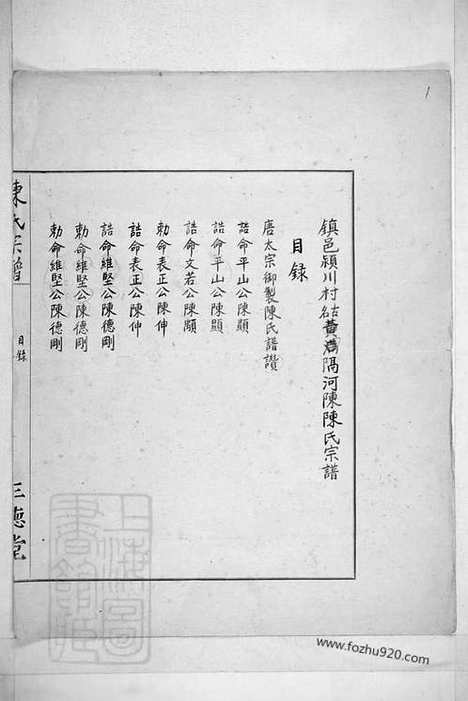 1
鎮邑潁川村結黃濟隔河陳陳氏宗譜
目錄
唐太宗御製陳氏譜讚
誥命平山公陳顯
誥命平山公陳顯
誥命文若公陳顒
勅命表正公陳伸
誥命表正公陳伸
誥命維堅公陳德剛
勅命維堅公陳德剛
勅命維堅公陳德剛
陳氏宗譜
目錄
三德堂
上海圖書館藏
www.fozhu920.com